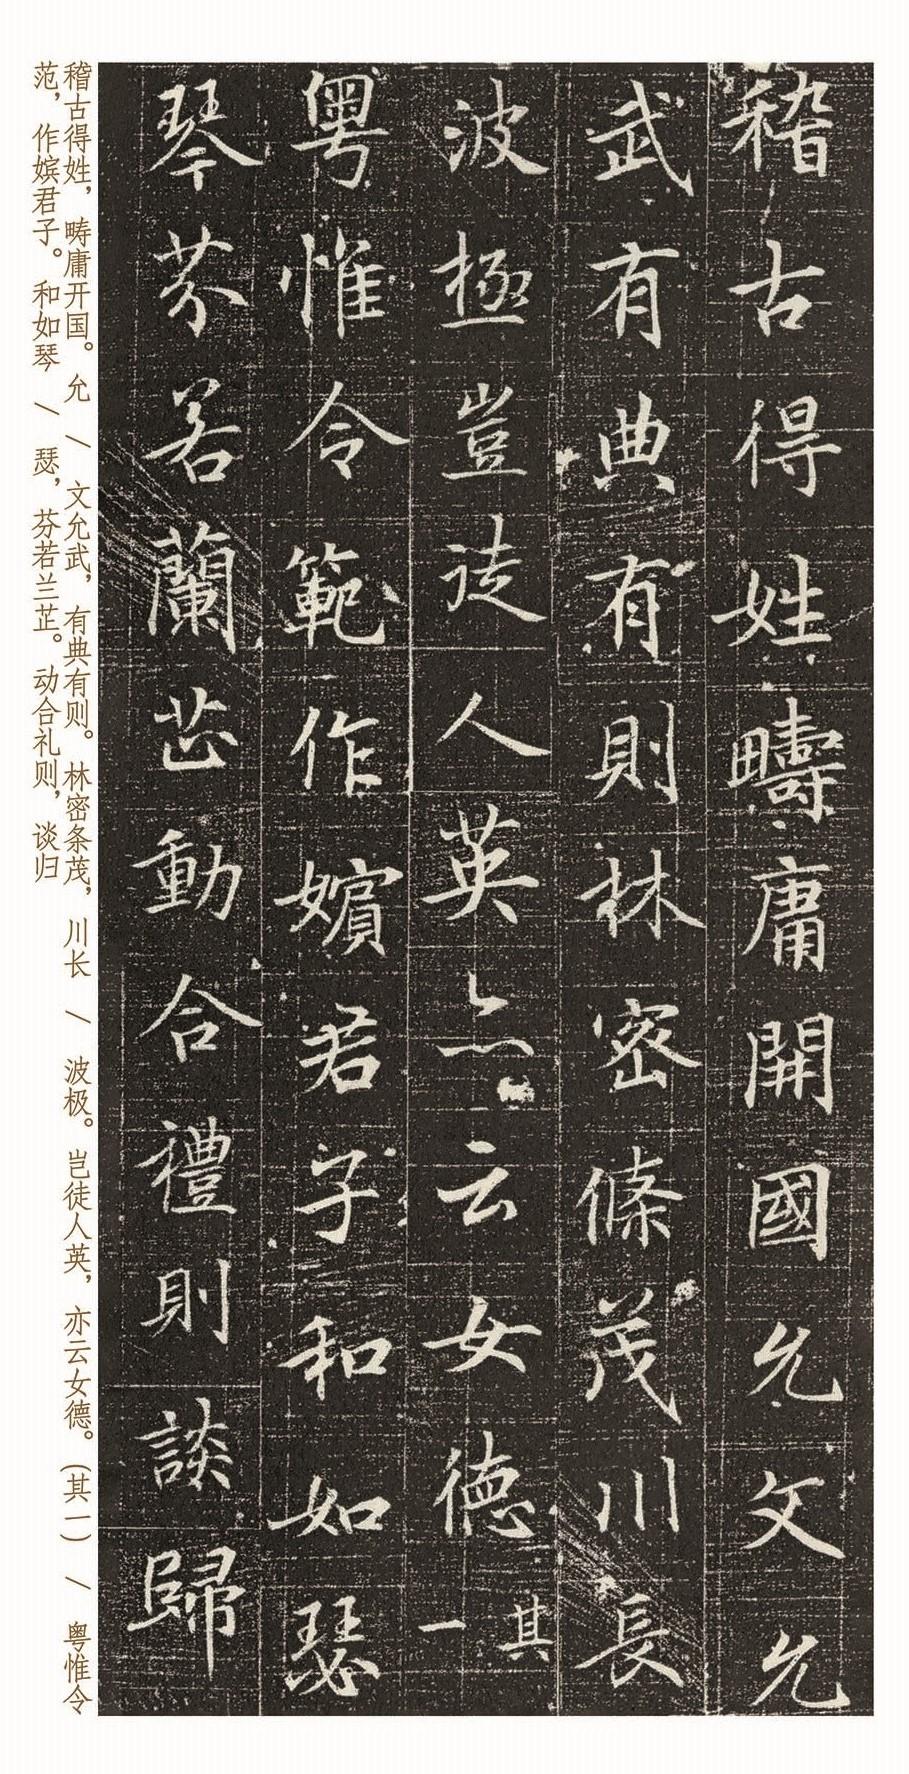 稽古得姓疇庸開國允文允
武有典有則林密條茂川長
波極豈徒人英亦云女德其一
粵惟令範作嬪君子和如瑟
琴芬若蘭芷動合禮則談歸
稽古得姓，畴庸开国。允 / 文允武，有典有则。林密条茂，川长 / 波极。岂徒人英，亦云女德。（其一） / 粤惟令
范，作嫔君子。和如琴 / 瑟，芬若兰芷。动合礼则，谈归